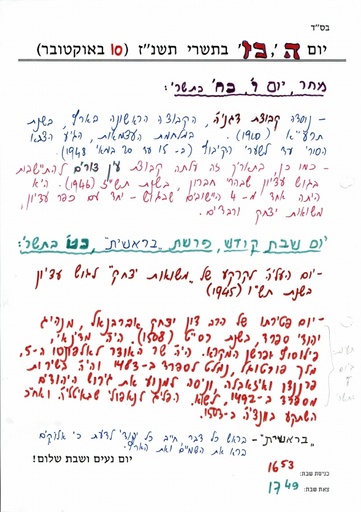 בס"ד
יום ה', כז' בתשרי תשנ"ז (10 באוקטובר)
מחר, יום ו', כח' בתשרי:
- נוסדה קבוצת דגניה, הקבוצה הראשונה בארץ, בשנת
תרע"א (1910). במלחמת העצמאות, הגיע הצבא
הסורי עד לשערי הקיבוץ (ב- 15 עד 20 במאי 1948).
- כמו כן, בתאריך זה עלתה קבוצת עין צורים להתיישבות
בגוש עציון שבהרי חברון, בשנת תש"ז (1946). היא
היתה אחד מ- 4 הישובים שבגוש - יחד עם כפר עציון,
משואות יצחק ורבדים.
יום שבת קודש, פרשת "בראשית", כט' בתשרי:
- יום העליה לקרקע של "משואות יצחק" לגוש עציון
בשנת תש"ו (1945)
- יום פטירתו של הרב דון יצחק אברבנאל, מנהיג
יהודי ספרד, בשנת רס"ט (1508). היה מדינאי,
פילוסוף ופרשן המקרא. היה שר האוצר לאלפונסו ה-5,
מלך פורטוגל, נמלט לספרד ב-1483 והיה בשירות
פרננדו ואיזבלה, וניסה למנוע את גירוש היהודים
מספרד ב-1492, לשוא. הפליג לנאפולי שבאיטליה, ואח"כ
השתקע בונציה ב-1503.
"בראשית" - בראש כל דבר חייב כל יהודי לדעת כי אלוקים
ברא את השמיים ואת הארץ.
יום נעים ושבת שלום!
כניסת שבת: 16 53
צאת שבת: 17 49